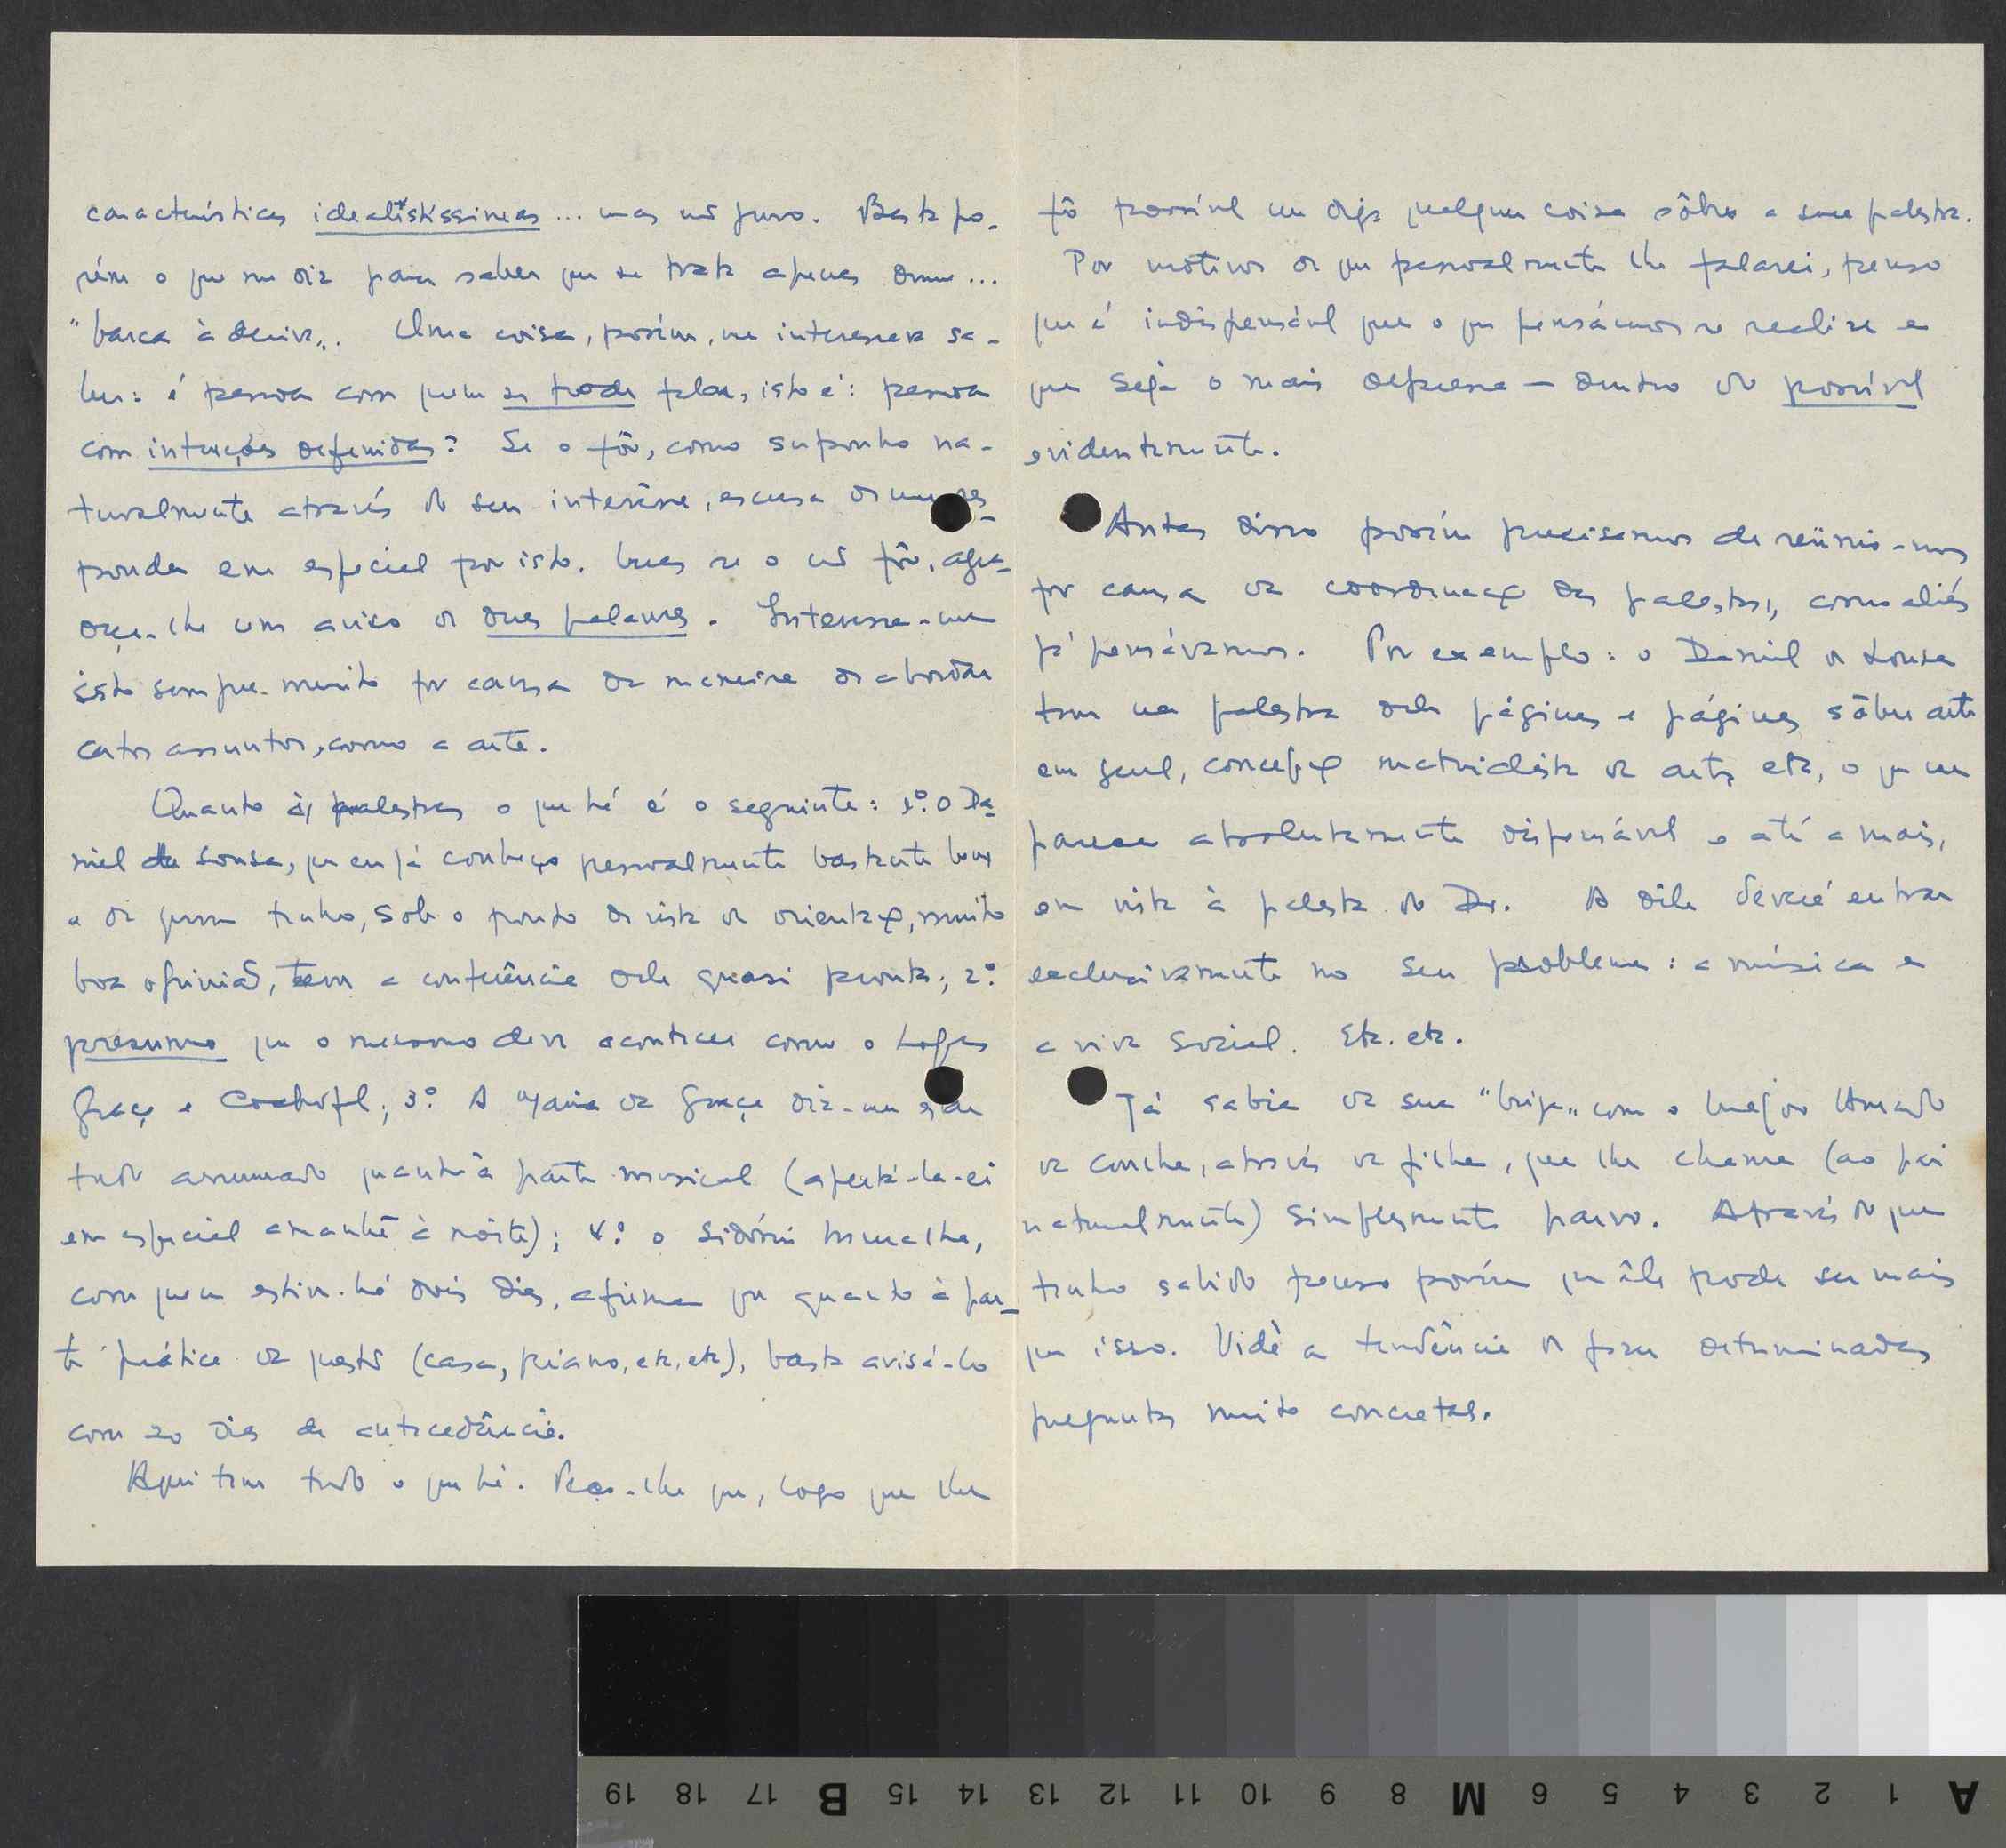 características idealistíssimas... mas não juro. Basta po-
rém o que me diz para saber que se trata apenas duma...
"barca à deriva„. Uma coisa, porém, me interessava sa-
ber: é pessoa com quem se pode falar, isto é: pessoa
com intenções definidas? Se o fôr, como suponho na-
turalmente através do seu interêsse, escusa de me res-
ponder em especial por isto. Mas se o não fôr, agra-
deço-lhe um aviso de duas palavras. Interessa-me
isto sempre muito por causa da maneira de abordar
certos assuntos, como a arte.
Quanto às palestras o que há é o seguinte: 1.º O Da-
niel de Sousa, que eu já conheço pessoalmente bastante bem
e de quem tenho, sob o ponto de vista de orientação, muito
boa opinião, tem a conferência dele quasi pronta; 2.º
presumo que o mesmo deve acontecer com o Lopes
Graça e Cochofel; 3.º A Maria da Graça diz-me estar
tudo arrumado quanto à parte musical (apertá-la-ei
em especial amanhã à noite); 4.º o Sidónio Muralha,
com quem estive há dois dias, afirma que quanto à par-
te prática da questão (casa, piano, etc, etc), basta avisá-lo
com 20 dias de antecedência.
Aqui tem tudo o que há. Peço-lhe que, logo que lhe
fôr possível me diga qualquer coisa sôbre a sua palestra.
Por motivos de que pessoalmente lhe falarei, penso
que é indispensável que o que pensámos se realize e
que seja o mais depressa — dentro do possível
evidentemente.
Antes disso porém precisamos de reünir-nos
por causa da coordenação das palestras, como aliás
já pensávamos. Por exemplo: o Daniel de Sousa
tem na palestra dele páginas e páginas sôbre arte
em geral, concepção materialista da arte, etc, o que me
parece absolutamente dispensável e até a mais,
em vista à palestra do Dr. A dêle deverá entrar
exclusivamente no seu problema: a música e
a vida social. Etc. etc.
Já sabia da sua "briga„ com o major Amado
da Cunha, através da filha, que lhe chama (ao pai
naturalmente) simplesmente parvo. Através do que
tenho sabido penso porém que êle pode ser mais
que isso. Vidè a tendência de fazer determinadas
preguntas muito concretas.
19 18 17 B 15 14 13 12 11 10 9 8 M 6 5 4 3 2 1 A